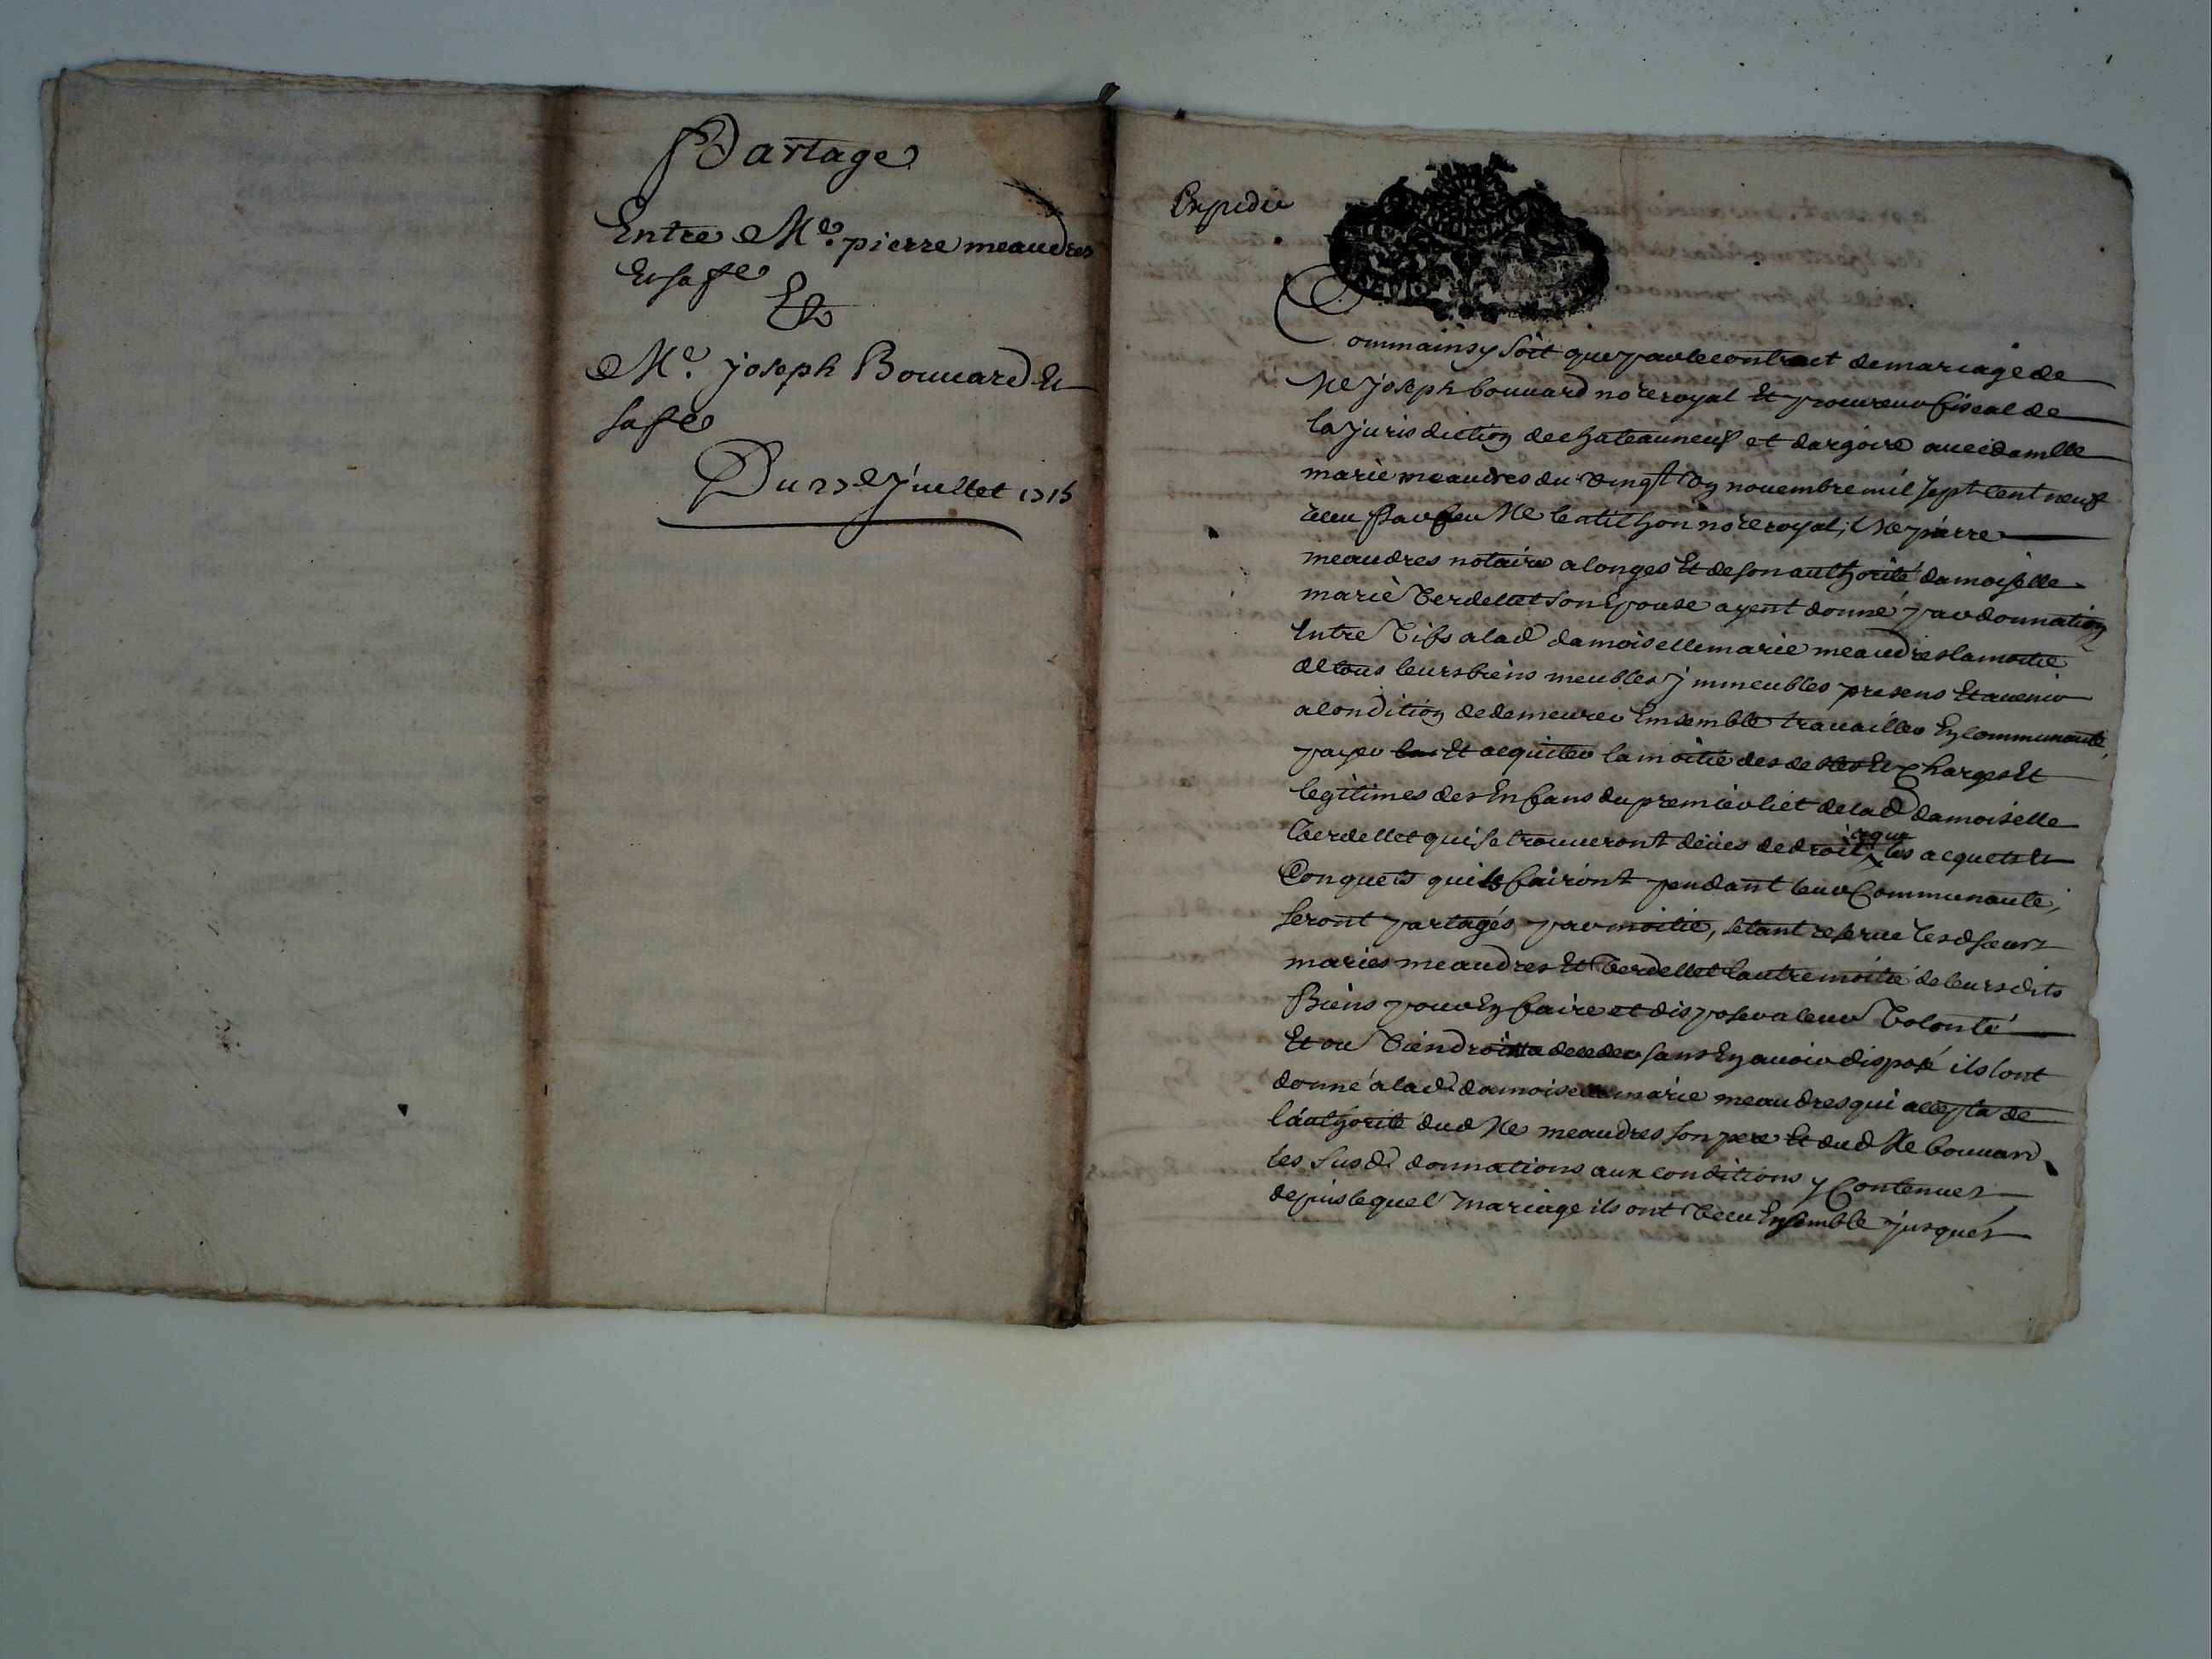 Partage
Entre Me. pierre meaudres
Et sa fe
Et
Me. joseph Bouuard Et
sa fe
Du 27e Juillet 1715
Expedié
Comme ainsy soit que par le contract de mariage de
Me joseph bouuard nore royal Et procureur fiscal de
la jurisdiction de chateauneuf et dargoire auec damlle
marie meaudres du vingt un nouembre mil sept cent neuf
receu par feu Me nore royal, Me pierre
meaudres notaire a longes Et de son authorité damoiselle
marie Verdellet son Epouse ayent donné par donnation
Entre vifs a lad damoiselle marie meaudres la moitié
de tous leurs biens meubles jmmeubles presens Et auenir
a condition de demeurer Ensemble trauailler En communauté
payer Et acquiter la moitié des debtes Et charges Et
legitimes des Enfans du premier lict de lad damoiselle
Verdellet qui se trouueront deües de droit, a que les acquets Et
Conquets quils fairont pendant leur Communauté,
seront partagés par moitié, setant reserué lesd sieurs
mariés meaudres Et Verdellet lautre moitié de leursdits
Biens pour En faire et disposer a leur Volonté
Et ou Viendroit a deceder sans En auoir disposé ils lont
donné a lad. damoiselle marie meaudres qui accepta de
lauthorité dud Me meaudres son pere Et dud Me bouuard
les susd. donnations aux conditions y Contenues
depuis lequel mariage ils ont Vecu Ensemble jusques